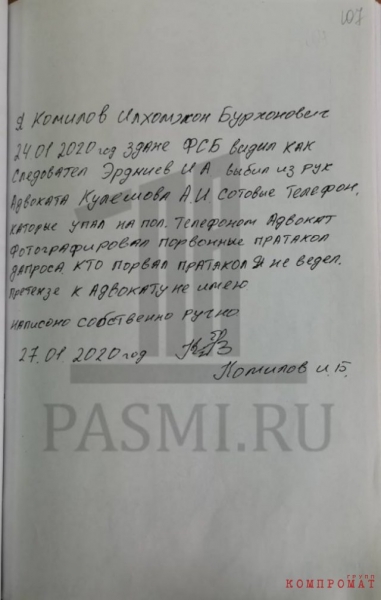 107
Я Комилов Илхомжон Бурхонович
24.01 2020 год здане ФСБ видил как
Следовател Эрдниев И А выбил из рук
Адвоката Кулешова А.И сотовые телефон,
каторые упал на пол. Телефоном Адвокат
Фотографировал порвонные пратакол
допроса. Кто порвал пратакол Я не ведел.
Претензе к Адвокату не имею
написоно собственно ручно
27.01 2020 год
Комилов и.Б.
PASMI.RU
ГРУПП
КОМПРОМАТ